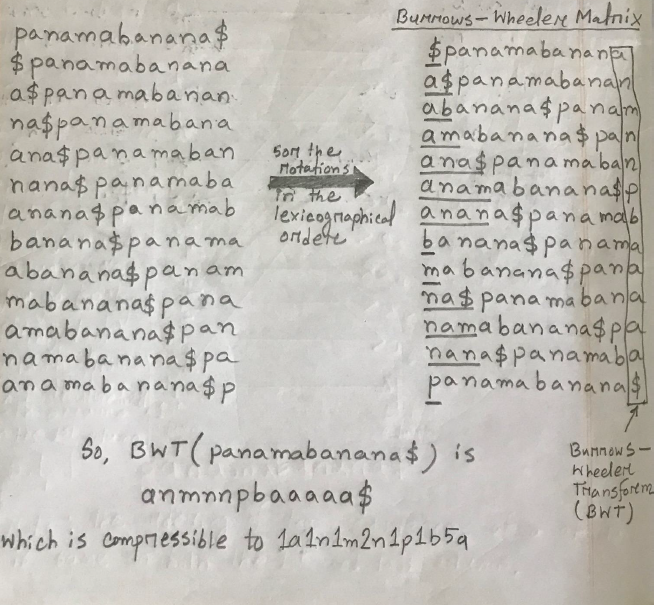 panamabanana$
$panamabanana
a$panamabanan
na$panamabana
ana$panamaban
nana$panamaba
anana$panamab
banana$panama
abanana$panam
mabanana$pana
amabanana$pan
namabanana$pa
anamabanana$p
Sort the
rotations
in the
lexicographical
order
Burrows-Wheeler Matrix
$panamabanana
a$panamabanan
abanana$panam
amabanana$pan
ana$panamaban
anamabanana$p
anana$panamab
banana$panama
mabanana$pana
na$panamabana
namabanana$pa
nana$panamaba
panamabanana$
Burrows-
Wheeler
Transform
(BWT)
So, BWT(panamabanana$) is
anmnnpbaaaaa$
which is compressible to 1a1n1m2n1p1b5a